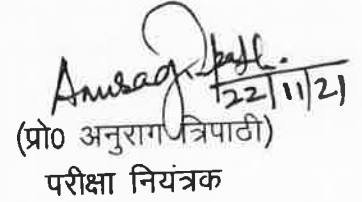 Anurag
22/11/21
(प्रो0 अनुराग त्रिपाठी)
परीक्षा नियंत्रक